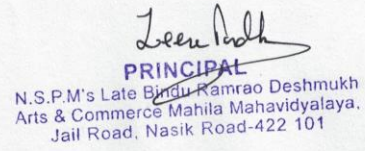 PRINCIPAL
N.S.P.M's Late Bindu Ramrao Deshmukh
Arts & Commerce Mahila Mahavidyalaya,
Jail Road, Nasik Road-422 101